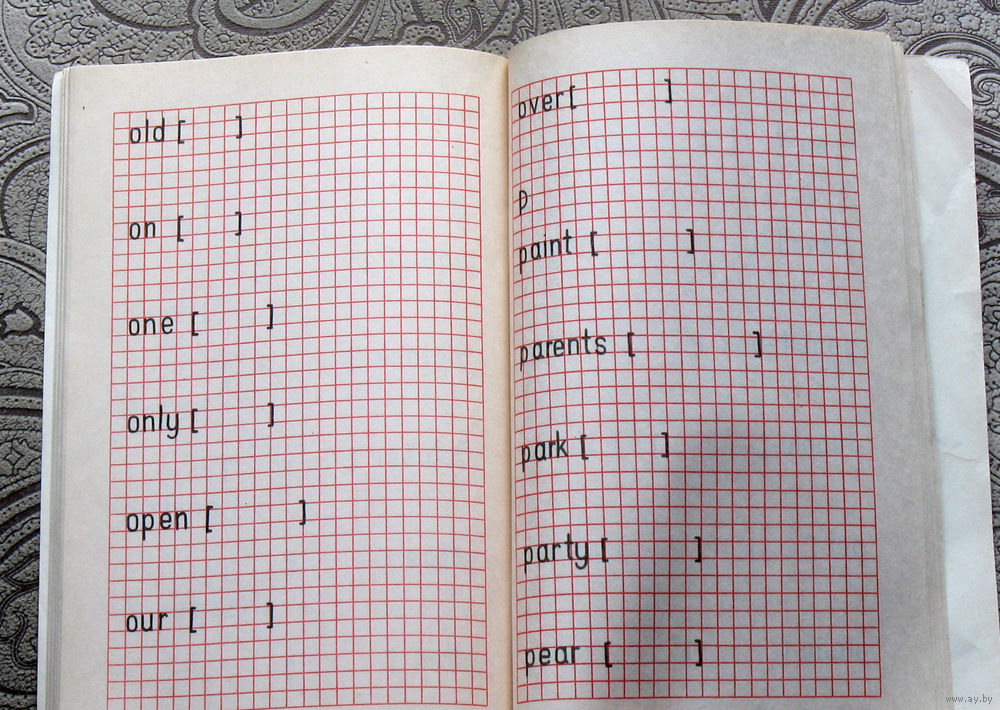 old [ ]
on [ ]
one [ ]
only [ ]
open [ ]
our [ ]
over [ ]
p
paint [ ]
parents [ ]
park [ ]
party [ ]
pear [ ]
www.ay.by